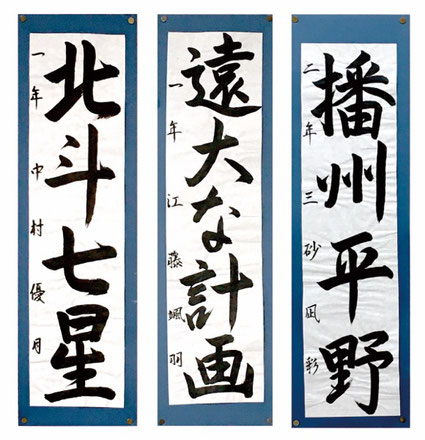 播州平野
二年 三砂凪彩
遠大な計画
一年 江藤颯羽
北斗七星
一年 中村優月